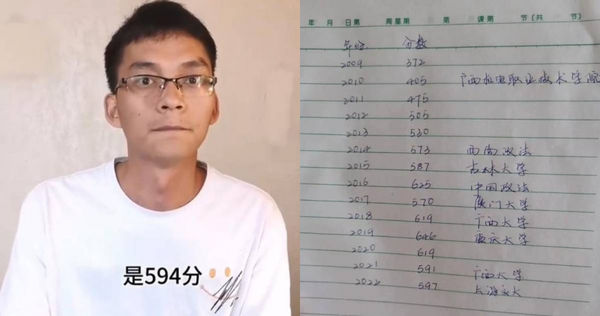 是594分
年 月 日第 周星期 第 课第 节(共 节)
年份 分数
2009 372
2010 405 广西机电职业技术学院
2011 475
2012 505
2013 530
2014 573 西南政法
2015 587 吉林大学
2016 625 中国政法
2017 570 厦门大学
2018 619 广西大学
2019 646 重庆大学
2020 619
2021 591 广西大学
2022 597 上海交大